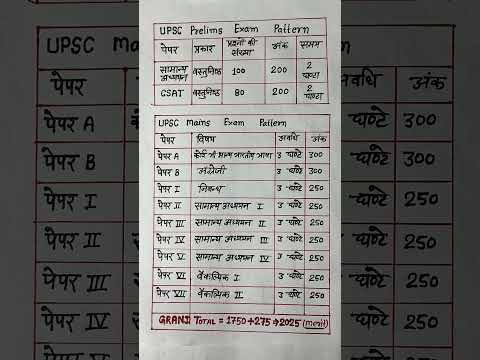 UPSC Prelims Exam Pattern
पेपर प्रकार प्रश्नों की संख्या अंक समय
सामान्य अध्ययन वस्तुनिष्ठ 100 200 2 घण्टा
CSAT वस्तुनिष्ठ 80 200 2 घण्टा
UPSC Mains Exam Pattern
पेपर विषय अवधि अंक
पेपर A कोई भी भारतीय भाषा 3 घण्टे 300
पेपर B अंग्रेजी 3 घण्टे 300
पेपर I निबन्ध 3 घण्टे 250
पेपर II सामान्य अध्ययन I 3 घण्टे 250
पेपर III सामान्य अध्ययन II 3 घण्टे 250
पेपर IV सामान्य अध्ययन III 3 घण्टे 250
पेपर V सामान्य अध्ययन IV 3 घण्टे 250
पेपर VI वैकल्पिक I 3 घण्टे 250
पेपर VII वैकल्पिक II 3 घण्टे 250
GRAND TOTAL = 1750+275→2025 (merit)
UPSC m
पेपर
पेपर A
पेपर B
पेपर I
पेपर II
पेपर III
पेपर IV
पेपर V
अवधि अंक
घण्टे 300
घण्टे 300
घण्टे 250
घण्टे 250
घण्टे 250
घण्टे 250
घण्टे 250